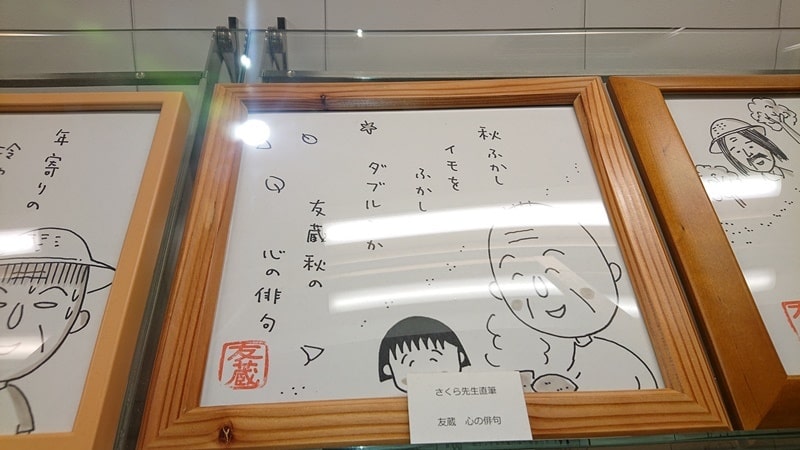 秋ふかし
イモを
ふかし
ダブル
友蔵秋の
心の俳句
友蔵
さくら先生直筆
友蔵　心の俳句
年寄りの